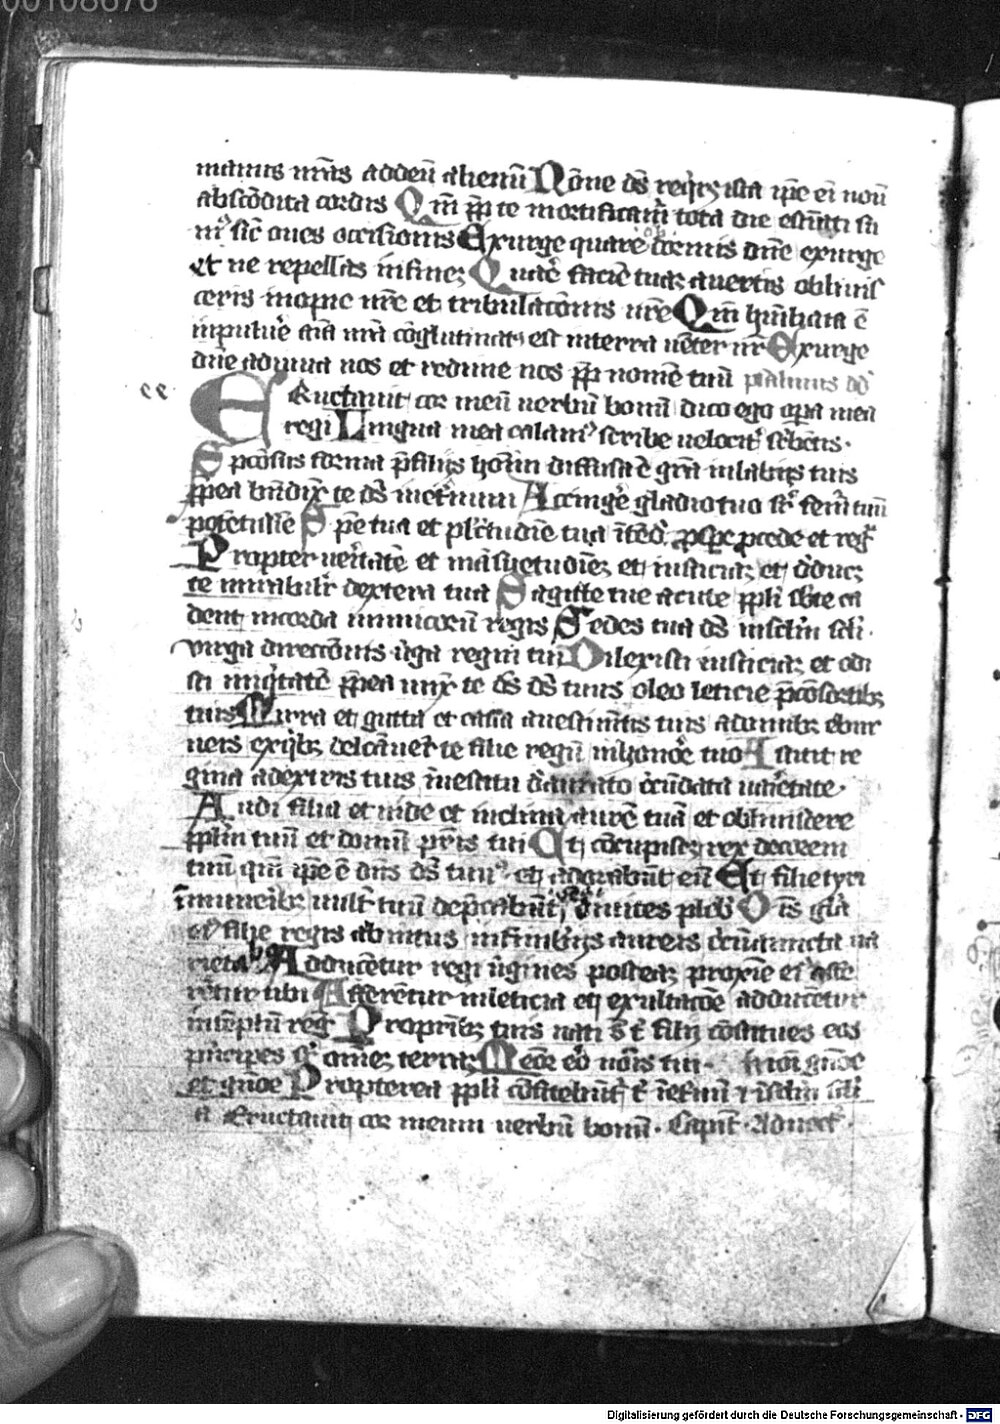 00108676
manus nr̄as ad deū alienū Nōne ds̄ reqͥret ista ip̄e ei nouͥ
abscōdita cordis Qm̄ ꝓp̄ te mortificamͬ tota die estīati su
mͧ sic̄ oues occisionis Exurge quare ob dormis dn̄e exurge
et ne repellas in finez Quare faciē tuaz auertis obliuis
ceris inopie nr̄e et tribulacōnis nr̄e Qm̄ hūiliata ē
in puluē aīa nr̄a cōglutinatꝰ est in terra uēter nr̄ Exurge
dn̄e adiuua nos et redime nos ꝓp̄ nomē tuū psalmus dd̄
Eructauit cor meū uerbū bonū dico ego opa mea
regi Lingua mea calamꝰ scribe uelocitͬ sc̄bētis.
Spēosus forma p̄ filijs hoīm diffusa ē grā in labijs tuis
ꝓpea bn̄dixͭ te ds̄ in et̄num Accinge gladio tuo sͬ femͬ tuū
potētissīe Spē tua et pulcͬtudīe tua ītēd̄ ꝓspe ꝓcede et regͣ
Propter ueritatē et māsuetudīez et iusticiaz et dͤducꝫ
te mirabilͬ dextera tua Sagitte tue acute ppl̄i sb̄ te ca
dent in corda inimicorū regis Sedes tua ds̄ in sclm̄ scli.
uirga direccōnis uͥga regni tui Dilexisti iusticiaz et odi
sti iniqͥtatē ꝓpea unxͭ te ds̄ ds̄ tuus oleo leticie p̄ cōsortibꝫ
tuis Mirra et gutta et casia a uestimētis tuis a domibꝫ ebur
neis ex qͥbꝫ delcāuert̄ te filie regū in honōe tuo Astitit re
gina a dextris tuis in uestitu dͤaurato cͥcūdata uaͥetate.
Audi filia et uide et inclina aurē tuā et obliuiscere
ppl̄m tuū et domū pr̄is tui Et cōcupiscet rex decorem
tuū qm̄ ip̄e ē dn̄s ds̄ tuus et adorabūt eū Et filie tyri
in muneribꝫ uultū tuū dep̄cabūt diuites plebͥ Oīs glā
eiꝰ filie regis ab intus in fimbrijs aureis cͥcūamicta ua
rietatibꝫ Adducētur regi uͥgines post eaz proxīe eiꝰ affe
rētur tibi Afferētur in leticia et exultacōe adducētur
in tēplū regͥ Pro patribꝫ tuis nati st̄ tͥ filij cōstitues eos
pͥncipes sͬ omnez terraz Meōr eō noīs tui in oīi gn̄oe
et gn̄oe Propterea ppl̄i cōfitebūtͬ tͥ ī et̄nū ⁊ ī sclm̄ scli
a Eructauit cor meum uerbū bonū.
Digitalisierung gefördert durch die Deutsche Forschungsgemeinschaft - DFG